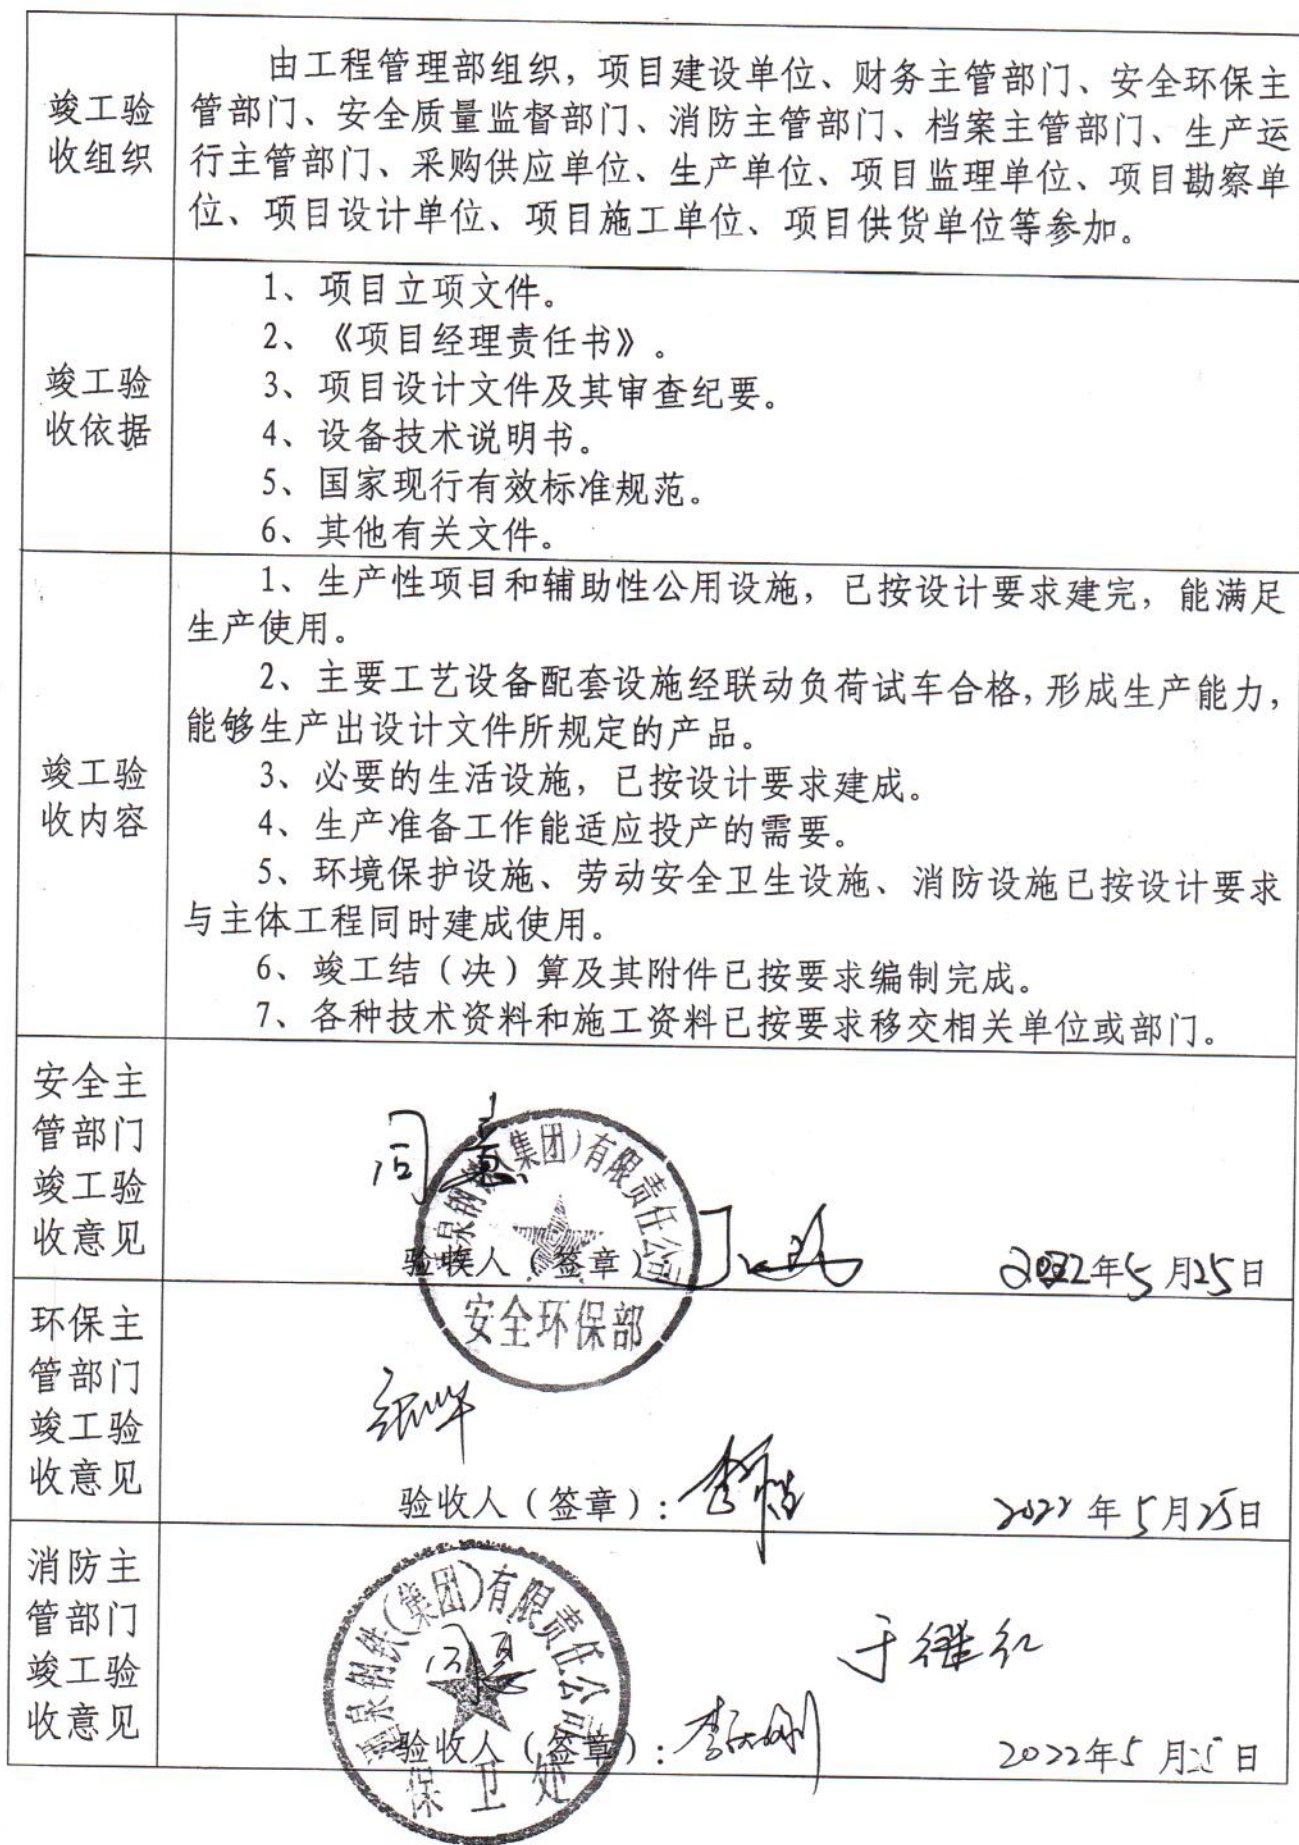 竣工验
收组织
由工程管理部组织，项目建设单位、财务主管部门、安全环保主
管部门、安全质量监督部门、消防主管部门、档案主管部门、生产运
行主管部门、采购供应单位、生产单位、项目监理单位、项目勘察单
位、项目设计单位、项目施工单位、项目供货单位等参加。
竣工验
收依据
1、项目立项文件。
2、《项目经理责任书》。
3、项目设计文件及其审查纪要。
4、设备技术说明书。
5、国家现行有效标准规范。
6、其他有关文件。
竣工验
收内容
1、生产性项目和辅助性公用设施，已按设计要求建完，能满足
生产使用。
2、主要工艺设备配套设施经联动负荷试车合格，形成生产能力，
能够生产出设计文件所规定的产品。
3、必要的生活设施，已按设计要求建成。
4、生产准备工作能适应投产的需要。
5、环境保护设施、劳动安全卫生设施、消防设施已按设计要求
与主体工程同时建成使用。
6、竣工结（决）算及其附件已按要求编制完成。
7、各种技术资料和施工资料已按要求移交相关单位或部门。
安全主
管部门
竣工验
收意见
同意
酒泉钢铁(集团)有限责任公司
验收人（签章）
2022年5月25日
安全环保部
环保主
管部门
竣工验
收意见
验收人（签章）：
2022年5月25日
消防主
管部门
竣工验
收意见
酒泉钢铁(集团)有限责任公司
同意
于继红
验收人（签章）：
2022年5月25日
保卫处